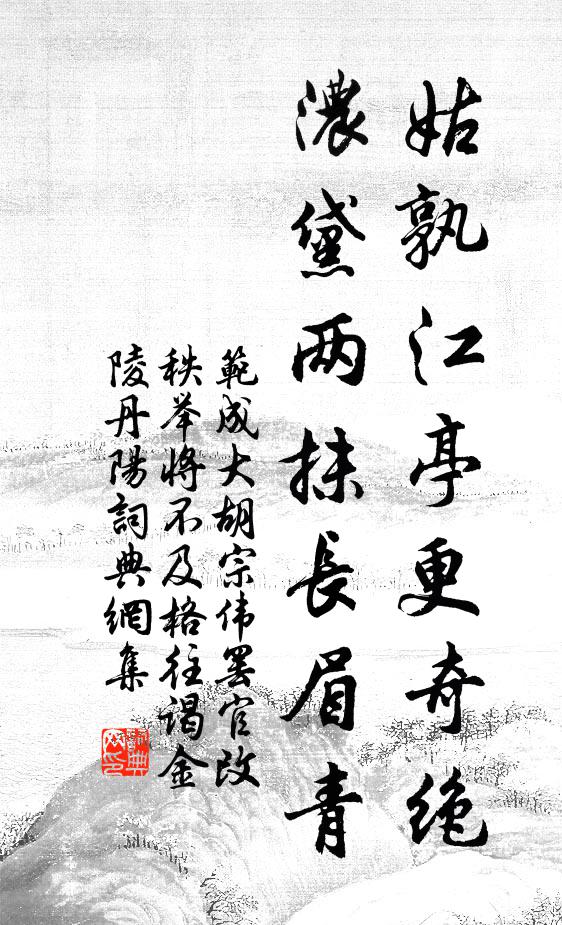 姑孰江亭更奇绝
濃黛两抹長眉青
範成大胡宗伟罢官改
秩举将不及格往谒金
陵丹陽詞典網集